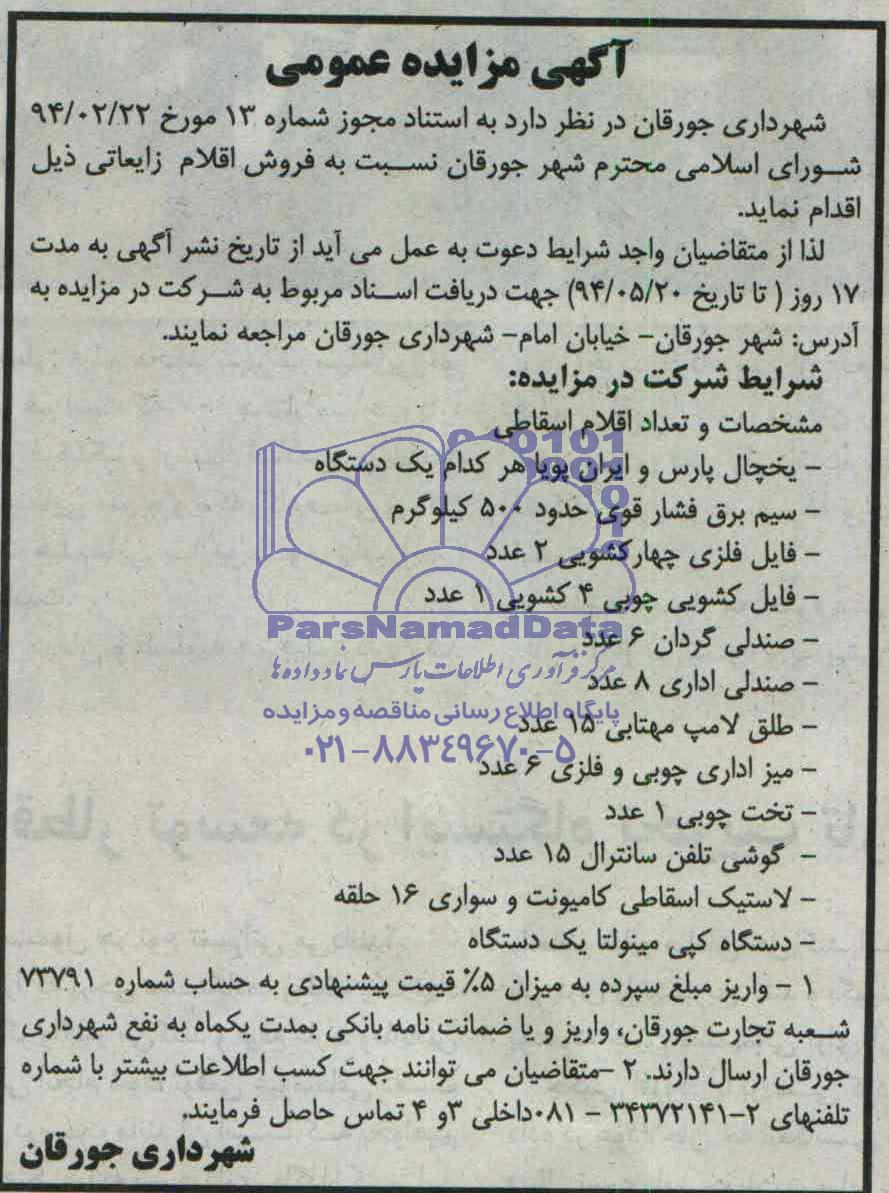 آگهی مزایده عمومی
شهرداری جورقان در نظر دارد به استناد مجوز شماره ۱۳ مورخ ۹۴/۰۲/۲۲
شورای اسلامی محترم شهر جورقان نسبت به فروش اقلام زایعاتی ذیل
اقدام نماید.
لذا از متقاضیان واجد شرایط دعوت به عمل می آید از تاریخ نشر آگهی به مدت
۱۷ روز ( تا تاریخ ۹۴/۰۵/۲۰) جهت دریافت اسناد مربوط به شرکت در مزایده به
آدرس: شهر جورقان- خیابان امام- شهرداری جورقان مراجعه نمایند.
شرایط شرکت در مزایده:
مشخصات و تعداد اقلام اسقاطی
- یخچال پارس و ایران پویا هر کدام یک دستگاه
- سیم برق فشار قوی حدود ۵۰۰ کیلوگرم
- فایل فلزی چهارکشویی ۲ عدد
- فایل کشویی چوبی ۴ کشویی ۱ عدد
ParsNamadData
- صندلی گردان ۶ عدد
مرکز فرآوری اطلاعات پارس نماد داده ها
- صندلی اداری ۸ عدد
پایگاه اطلاع رسانی مناقصه و مزایده
- طلق لامپ مهتابی ۱۵ عدد
۰۲۱-۸۸۳۴۹۶۷۰-۵
- میز اداری چوبی و فلزی ۶ عدد
- تخت چوبی ۱ عدد
- گوشی تلفن سانترال ۱۵ عدد
- لاستیک اسقاطی کامیونت و سواری ۱۶ حلقه
- دستگاه کپی مینولتا یک دستگاه
۱ - واریز مبلغ سپرده به میزان ۵٪ قیمت پیشنهادی به حساب شماره ۷۳۷۹۱
شعبه تجارت جورقان، واریز و یا ضمانت نامه بانکی بمدت یکماه به نفع شهرداری
جورقان ارسال دارند. ۲ -متقاضیان می توانند جهت کسب اطلاعات بیشتر با شماره
تلفنهای ۲-۳۴۳۷۲۱۴۱ - ۰۸۱داخلی ۳و ۴ تماس حاصل فرمایند.
شهرداری جورقان